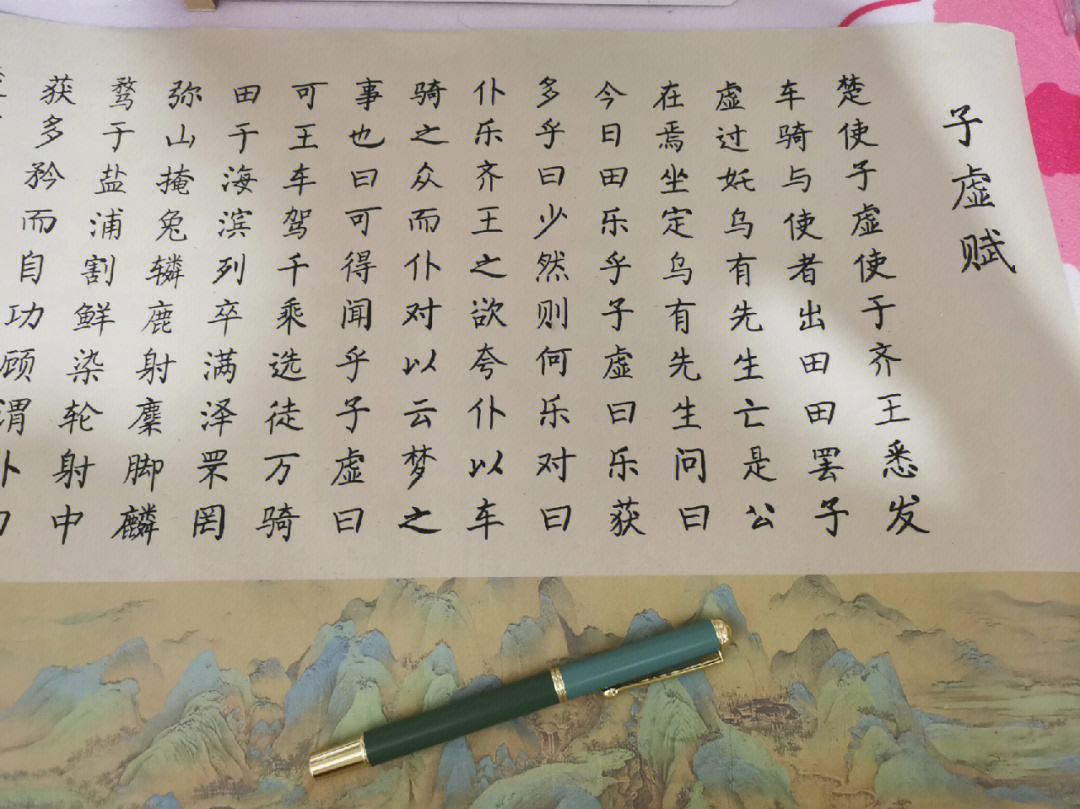 子虚赋
楚使子虚使于齐王悉发
车骑与使者出田田罢子
虚过奼乌有先生亡是公
在焉坐定乌有先生问曰
今日田乐乎子虚曰乐获
多乎曰少然则何乐对曰
仆乐齐王之欲夸仆以车
骑之众而仆对以云梦之
事也曰可得闻乎子虚曰
可王车驾千乘选徒万骑
田于海滨列卒满泽罘罔
弥山掩兔辚鹿射麋脚麟
鹜于盐浦割鲜染轮射中
获多矜而自功顾谓